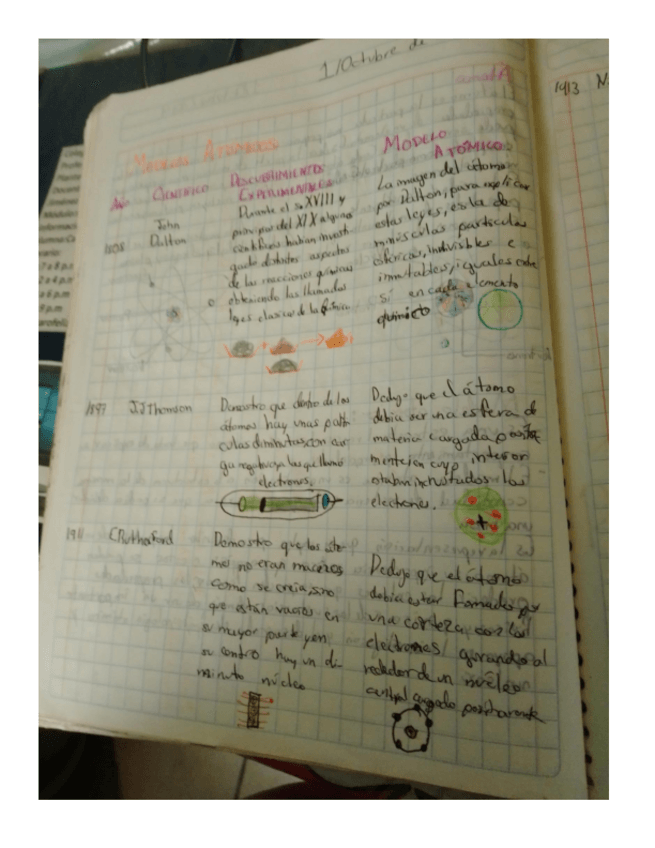 1/Octubre de
MODELOS ATÓMICOS
AÑO
CIENTÍFICO
DESCUBRIMIENTOS
EXPERIMENTALES
MODELO
ATÓMICO
1808
John
Dalton
Durante el s. XVIII y
principios del XIX algunos
científicos habían investi-
gado distintos aspectos
de las reacciones químicas
obteniendo las llamadas
leyes clasicas de la Química
La imagen del átomo
por Dalton, para explicar
estas leyes, es la de
minúsculas partículas
esféricas, indivisibles e
inmutables, iguales entre
sí en cada elemento
químico
1897
JJ Thomson
Demostro que dentro de los
átomos hay unas partí-
culas diminutas, con car-
ga negativa, a las que llamó
electrones.
Dedujo que el átomo
debia ser una esfera de
materia cargada positiva
mente, en cuyo interior
estaban incrustados los
electrones.
1911
E. Rutherford
Demostro que los áto-
mos no eran macizos
como se creía, sino
que están vacíos en
su mayor parte y en
su centro hay un di-
minuto núcleo
Dedujo que el átomo
debia estar formado por
una corteza con los
electrones girando al
rededor de un núcleo
central cargado positivamente
1913
N